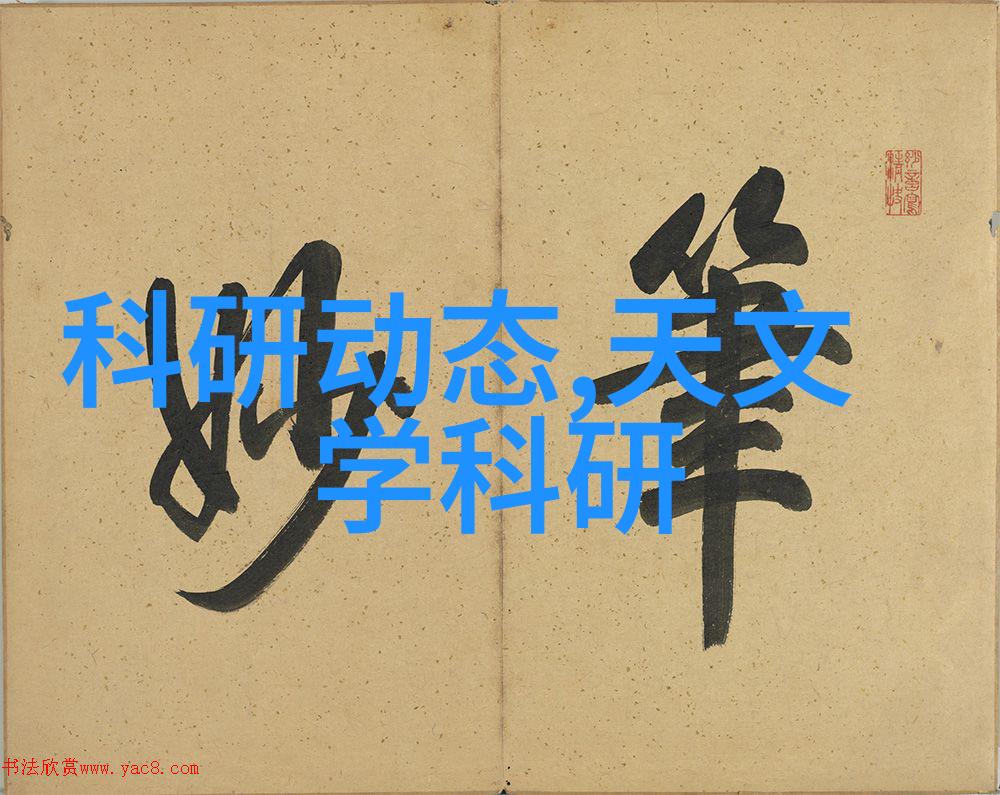 筆妙
科研动态,天文
学科研
书法欣赏www.yac8.com